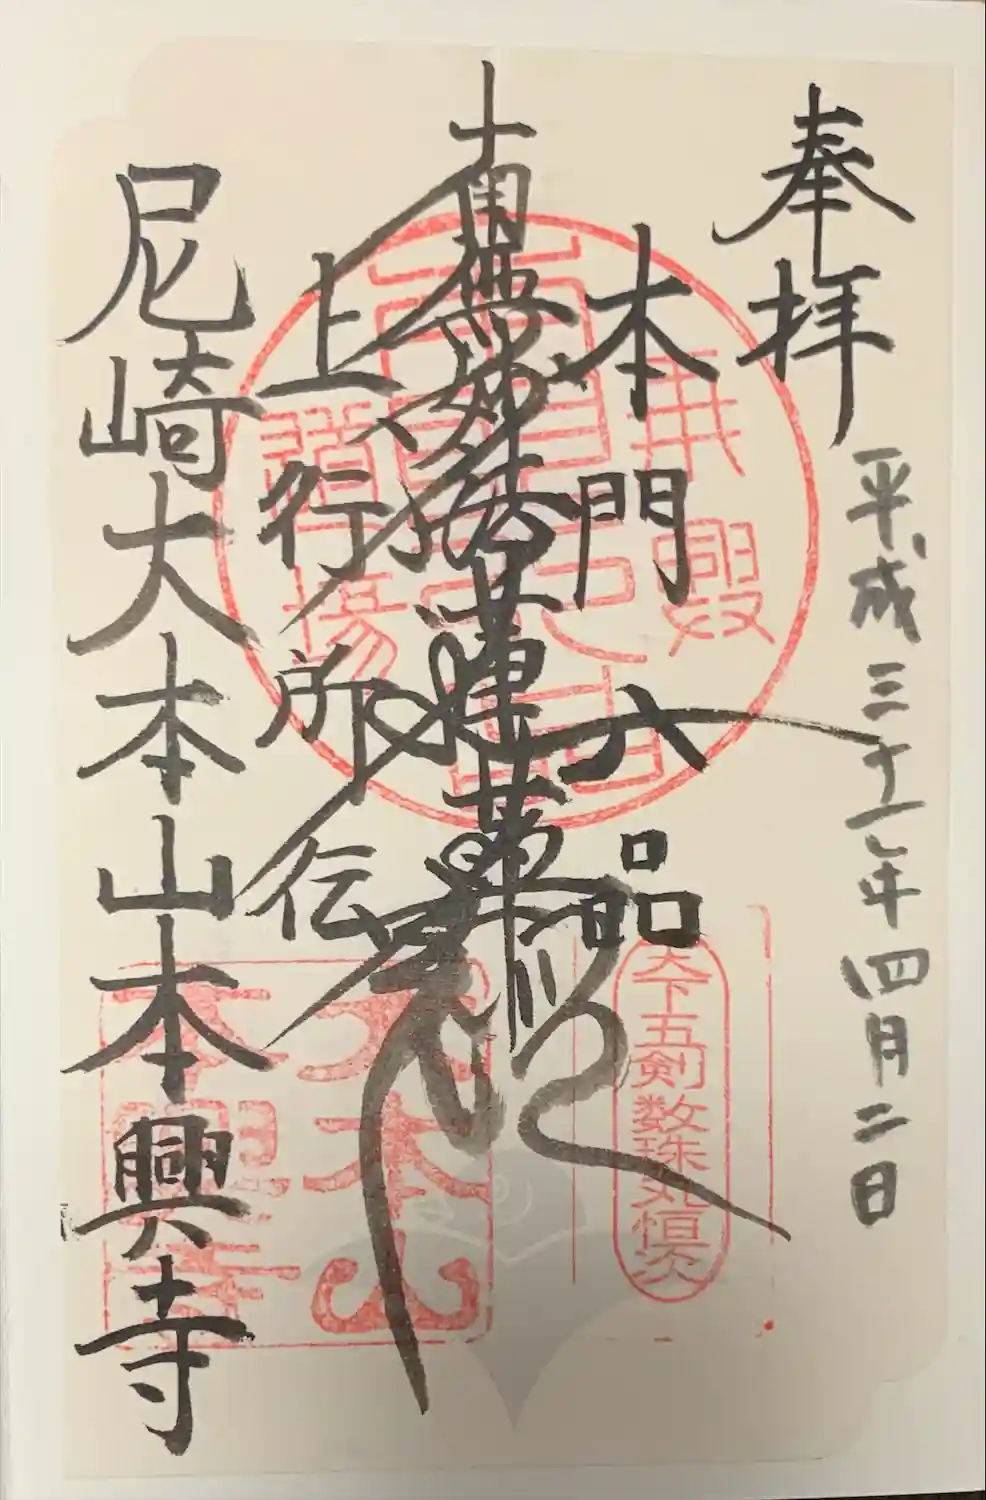 奉拝
平成三十一年四月二日
本門八品
南無妙法蓮華経
上行所伝
尼崎大本山本興寺
天下五剣数珠丸恒次
大本山
本興寺